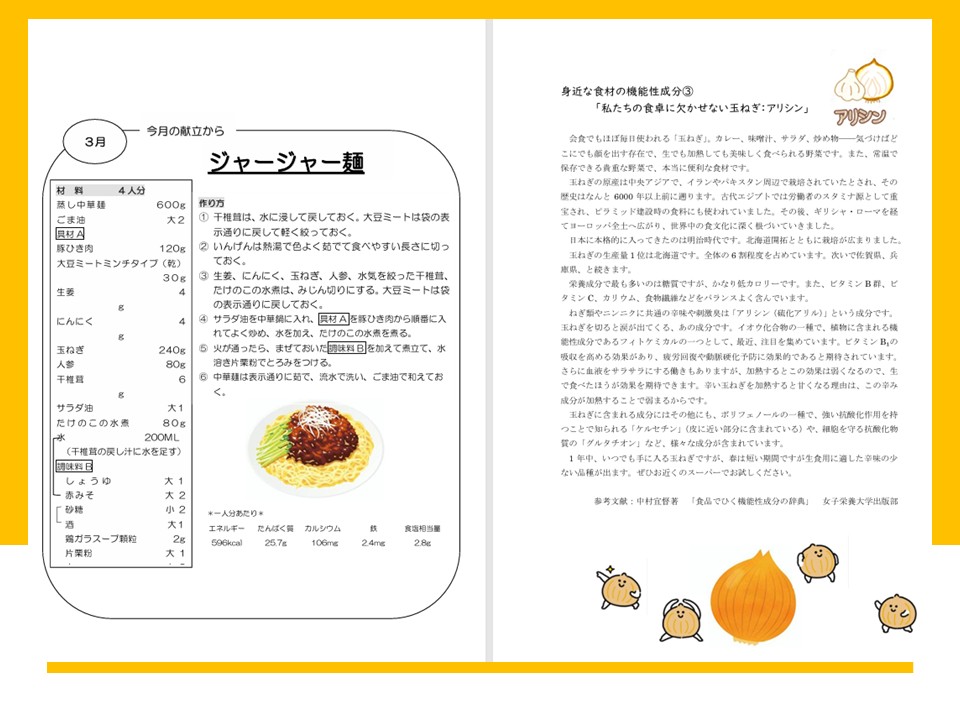 3月
今月の献立から
ジャージャー麺
材 料 4人分
蒸し中華麺 600g
ごま油 大2
具材A
豚ひき肉 120g
大豆ミートミンチタイプ(乾)
30g
生姜 4
g
にんにく 4
g
玉ねぎ 240g
人参 80g
干椎茸 6
g
サラダ油 大1
たけのこの水煮 80g
水 200ML
(干椎茸の戻し汁に水を足す)
調味料B
しょうゆ 大1
赤みそ 大2
砂糖 小2
酒 大1
鶏ガラスープ顆粒 2g
片栗粉 大1
作り方
① 干椎茸は、水に浸して戻しておく。大豆ミートは袋の表
示通りに戻して軽く絞っておく。
② いんげんは熱湯で色よく茹でて食べやすい長さに切っ
ておく。
③ 生姜、にんにく、玉ねぎ、人参、水気を絞った干椎茸、
たけのこの水煮は、みじん切りにする。大豆ミートは袋
の表示通りに戻しておく。
④ サラダ油を中華鍋に入れ、具材Aを豚ひき肉から順番に入
れてよく炒め、水を加え、たけのこの水煮を煮る。
⑤ 火が通ったら、まぜておいた調味料Bを加えて煮立て、水
溶き片栗粉でとろみをつける。
⑥ 中華麺は表示通りに茹で、流水で洗い、ごま油で和えてお
く。
*一人分あたり*
エネルギー たんぱく質 カルシウム 鉄 食塩相当量
596kcal 25.7g 106mg 2.4mg 2.8g
身近な食材の機能性成分③
「私たちの食卓に欠かせない玉ねぎ:アリシン」
アリシン
会食でもほぼ毎日使われる「玉ねぎ」。カレー、味噌汁、サラダ、炒め物──気づけばど
こにでも顔を出す存在で、生でも加熱しても美味しく食べられる野菜です。また、常温で
保存できる貴重な野菜で、本当に便利な食材です。
玉ねぎの原産は中央アジアで、イランやパキスタン周辺で栽培されていたとされ、その
歴史はなんと 6000 年以上前に遡ります。古代エジプトでは労働者のスタミナ源として重
宝され、ピラミッド建設時の食料にも使われていました。その後、ギリシャ・ローマを経
てヨーロッパ全土へ広がり、世界中の食文化に深く根づいていきました。
日本に本格的に入ってきたのは明治時代です。北海道開拓とともに栽培が広まりました。
玉ねぎの生産量 1 位は北海道です。全体の 6 割程度を占めています。次いで佐賀県、兵
庫県、と続きます。
栄養成分で最も多いのは糖質ですが、かなり低カロリーです。また、ビタミン B 群、ビ
タミン C、カリウム、食物繊維などをバランスよく含んでいます。
ねぎ類やニンニクに共通の辛味や刺激臭は「アリシン(硫化アリル)」という成分です。
玉ねぎを切ると涙が出てくる、あの成分です。イオウ化合物の一種で、植物に含まれる機
能性成分であるフィトケミカルの一つとして、最近、注目を集めています。ビタミン B₁の
吸収を高める効果があり、疲労回復や動脈硬化予防に効果的であると期待されています。
さらに血液をサラサラにする働きもありますが、加熱するとこの効果は弱くなるので、生
で食べたほうが効果を期待できます。辛い玉ねぎを加熱すると甘くなる理由は、この辛み
成分が加熱することで弱まるからです。
玉ねぎに含まれる成分にはその他にも、ポリフェノールの一種で、強い抗酸化作用を持
つことで知られる「ケルセチン」(皮に近い部分に含まれている)や、細胞を守る抗酸化物
質の「グルタチオン」など、様々な成分が含まれています。
1 年中、いつでも手に入る玉ねぎですが、春は短い期間ですが生食用に適した辛味の少
ない品種が出ます。ぜひお近くのスーパーでお試しください。
参考文献:中村宜督著 「食品でひく機能性成分の辞典」 女子栄養大学出版部